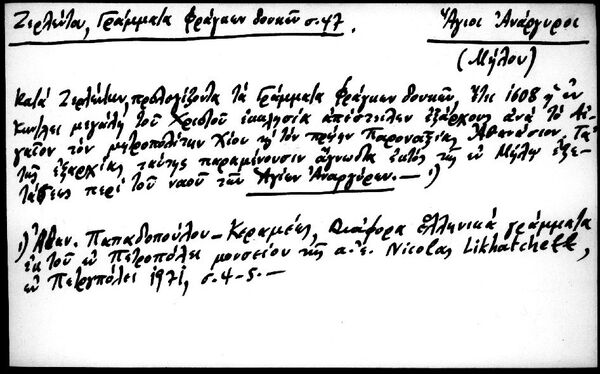 Ζερλέντα, Γράμματα Φράγκων δουκῶν σ.47.
Ἅγιοι Ἀνάργυροι
(Μήλου)
Κατά Ζερλέντην, προλογίζοντα τά Γράμματα Φράγκων δουκῶν, ἔτει 1608 ἡ ἐν
Κων/λει μεγάλη τοῦ Χριστοῦ ἐκκλησία ἀπέστειλεν ἐξάρχους ἀνά τό Αἰ-
γαῖον τόν μητροπολίτην Χίου καί τόν πρώην Παροναξίας Ἀθανάσιον. Τά
τῆς ἐξαρχίας ταύτης παραμένουσιν ἄγνωστα ἐκτός τῆς ἐν Μήλῳ ἐξε-
τάσεως περί τοῦ ναοῦ τῶν Ἁγίων Ἀναργύρων. — 1)
1) Ἀθαν. Παπαδοπούλου - Κεραμέως, Διάφορα ἑλληνικά γράμματα
ἐκ τοῦ ἐν Πετροπόλει μουσείου τῆς α.ἐ. Nicolas Likhatcheff,
ἐν Πετρουπόλει 1971, σ.4-5. —